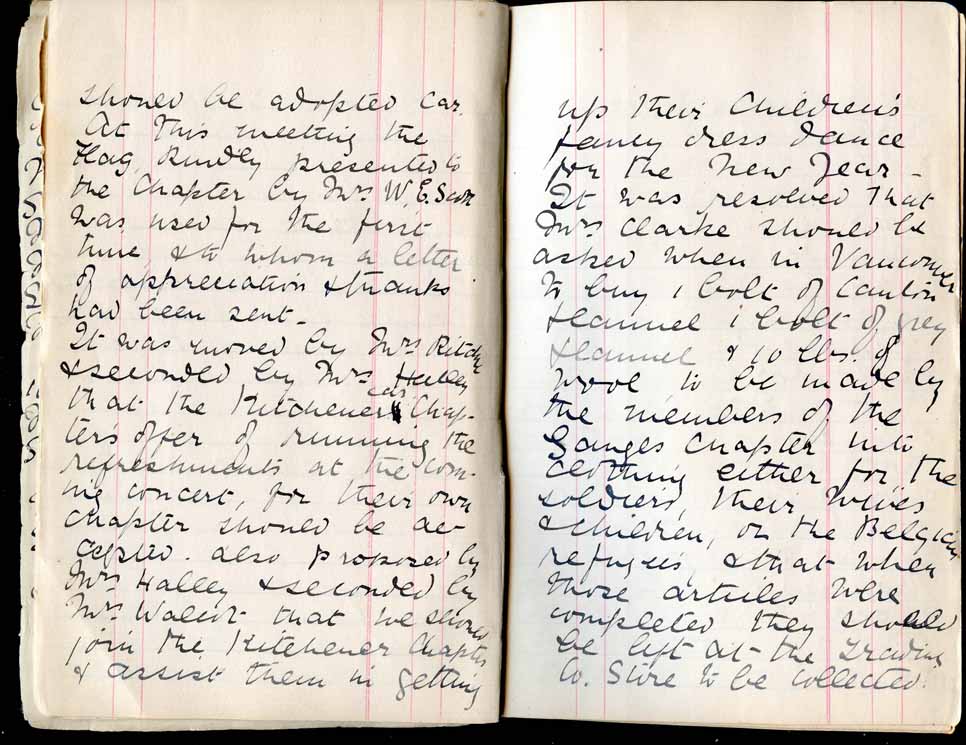 should be adopted Car.
At this meeting the
Flag, kindly presented to
the Chapter by Mrs W. E. Scott
was used for the first
time, & to whom a letter
of appreciation & thanks
had been sent.
It was moved by Mrs Ritchie
& seconded by Mrs Halley
that the Kitchener Chap-
ter's offer of running the
refreshments at the com-
ing concert, for their own
Chapter should be ac-
cepted. also proposed by
Mrs Halley & seconded by
Mrs Walcot that we should
join the Kitchener Chapter
& assist them in getting
up their Children's
fancy dress dance
for the New Year -
It was resolved that
Mrs Clarke should be
asked when in Vancouver
to buy 1 bolt of Canton
flannel 1 bolt of grey
flannel & 10 lbs. of
wool to be made by
the members of the
Ganges Chapter into
clothing either for the
soldiers, their wives
& children, or the Belgian
refugees, & that when
those articles were
completed they should
be left at the Trading
Co. Store to be collected.